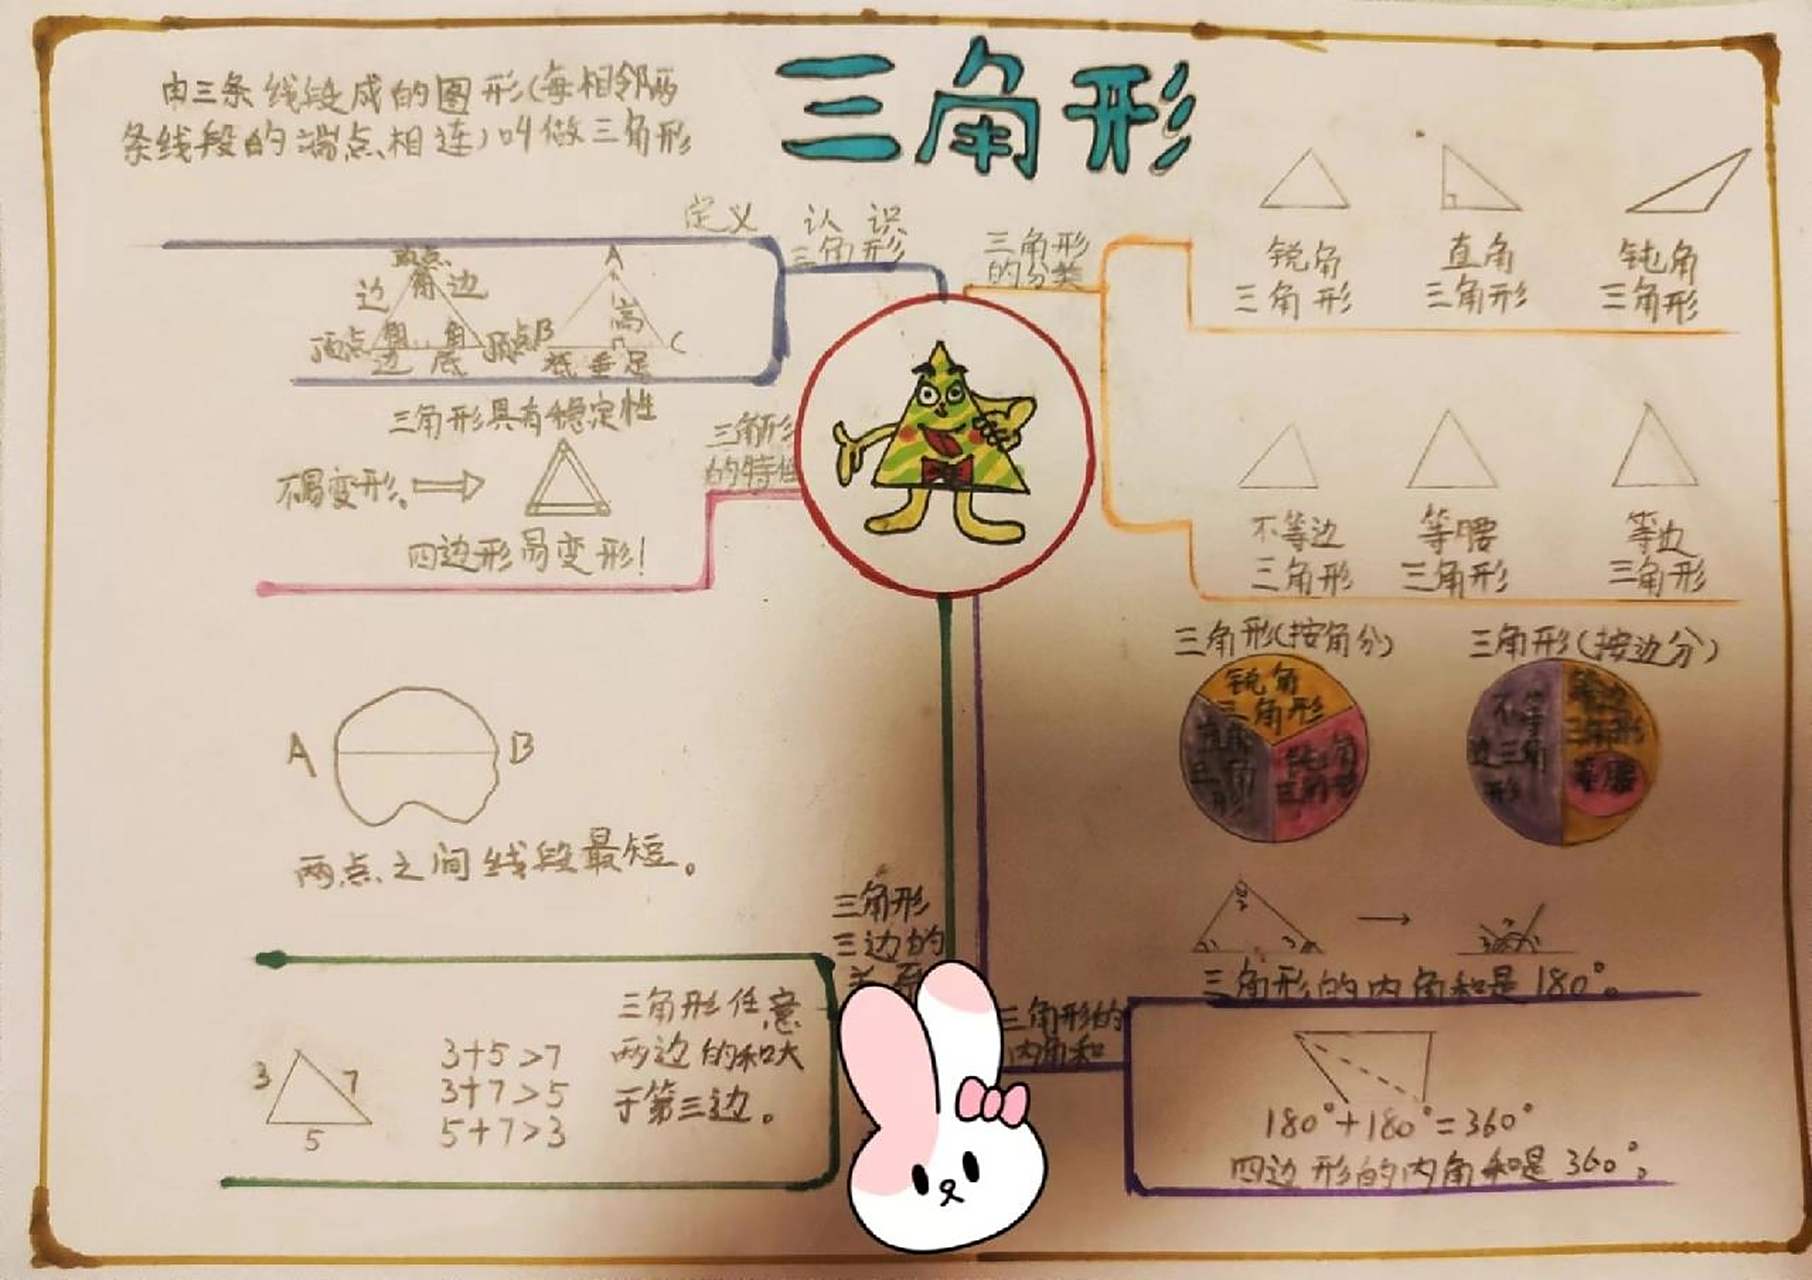 三角形
由三条线段成的图形(每相邻两
条线段的端点相连)叫做三角形
定义
认识
三角形
顶点
边 角 边
顶点 角 角 顶点
边 底
A
高
B
C
垂足
三角形具有稳定性
不易变形、
四边形易变形!
三角形
的特性
A
B
两点之间线段最短。
三角形
三边的
关系
三角形任意
两边的和大
于第三边。
3
7
5
3+5>7
3+7>5
5+7>3
三角形
的分类
锐角
三角形
直角
三角形
钝角
三角形
不等边
三角形
等腰
三角形
等边
三角形
三角形(按角分)
锐角
三角形
钝角
三角形
三角形(按边分)
不等
边三角
形
等边
三角形
等腰
1
2
3
三角形的内角和是180°。
三角形的
内角和
180°+180°=360°
四边形的内角和是360°。